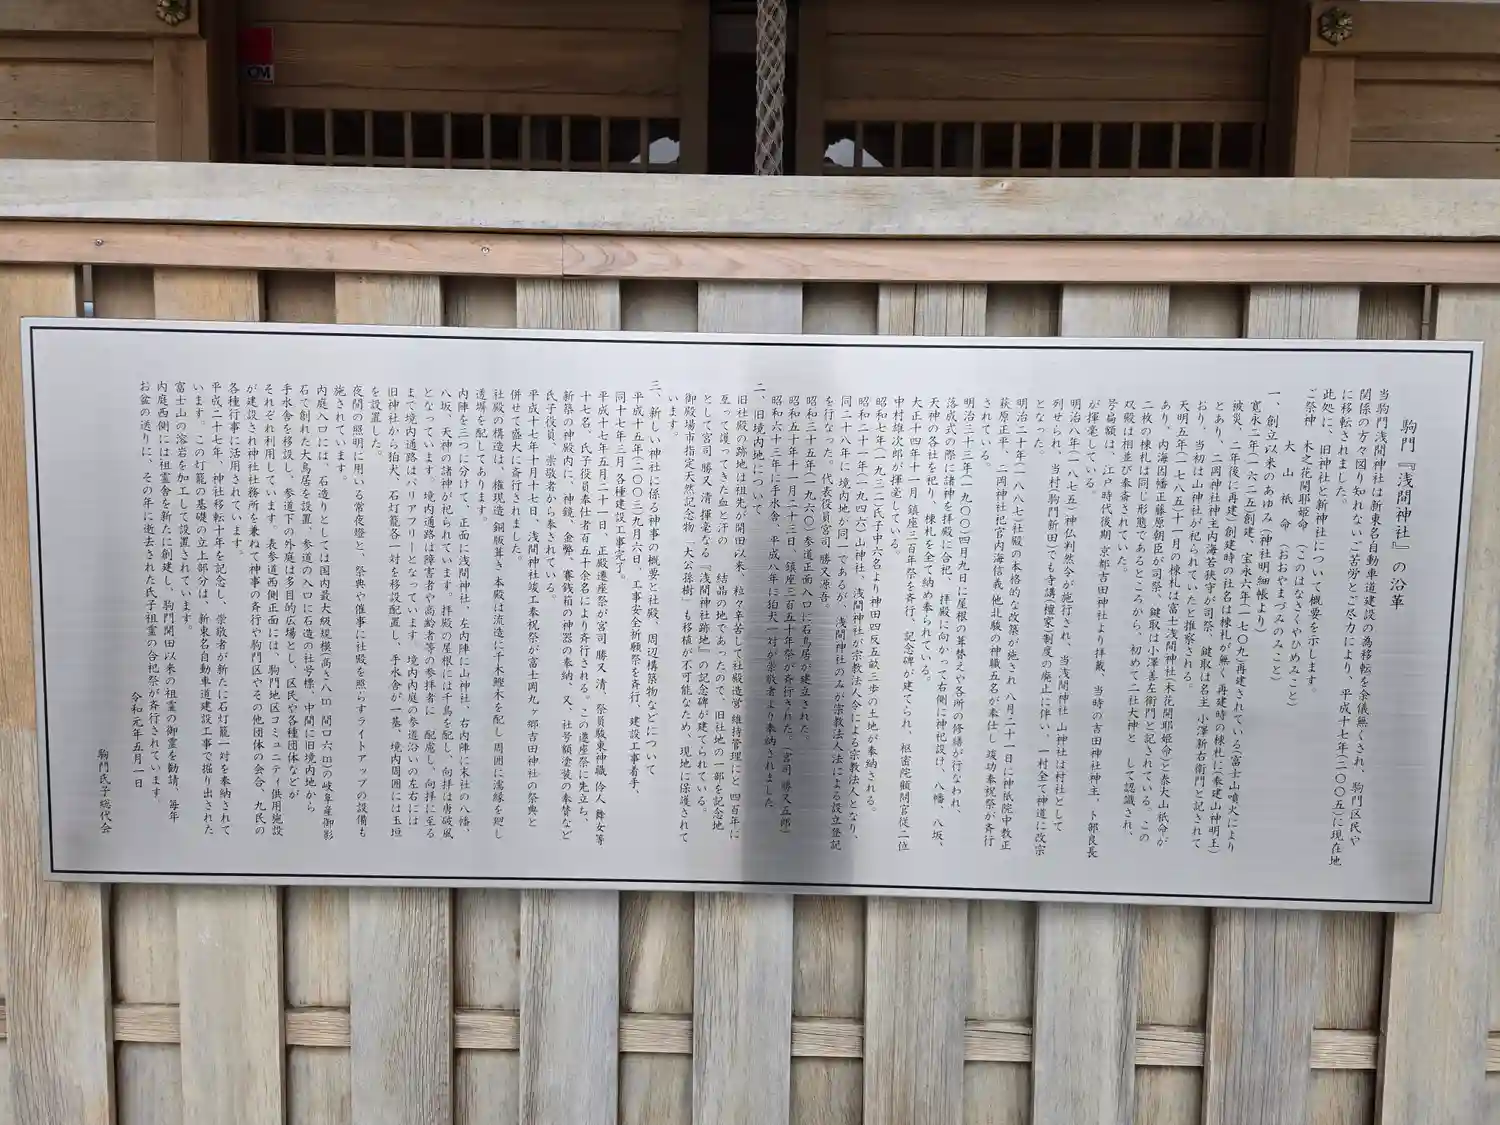 駒門『浅間神社』の沿革
当駒門浅間神社は新東名自動車道建設の為移転を余儀無くされ、駒門区民や
関係の方々図り知れないご苦労とご尽力により、平成十七年(二〇〇五)に現在地
に移転されました。
此処に、旧神社と新神社について概要を示します。
ご祭神 木之花開耶姫命 (このはなさくやひめみこと)
大山祇命 (おおやまづみのみこと)
一、創立以来のあゆみ(神社明細帳より)
寛永二年(一六二五)創建、宝永六年(一七〇九)再建されている(富士山噴火により
被災、二年後に再建)創建時の社名は棟札が無く 再建時の棟札に(奉建山神明王)
とあり、二岡神社神主内海若狭守が司祭、鍵取は名主 小澤新右衛門と記されて
おり、当初は山神社が祀られていたと推察される。
天明五年(一七八五)十一月の棟札は富士浅間神社(木花開耶姫命)と泰大山祇命が
あり、内海因幡正藤原朝臣が司祭、鍵取は小澤善左衛門と記されている。この
二枚の棟札は同じ形態であるところから、初めて二社大神と して認識され、
双殿は相並び奉斎されていた。
号扁額は、江戸時代後期京都吉田神社より拝戴、当時の吉田神社神主、卜部良長
が揮毫している。
明治八年(一八七五)神仏判然令が施行され、当浅間神社 山神社は村社として
列せられ、当村(駒門新田)でも寺請檀家制度の廃止に伴い、一村全て神道に改宗
となった。
明治二十年(一八八七)社殿の本格的な改築が施され 八月二十一日に神祇院中教正
萩原正平、二岡神社祀官内海信義、他北駿の神職五名が奉仕し 竣功奉祝祭が斉行
されている。
明治三十三年(一九〇〇)四月九日に屋根の葺替えや各所の修繕が行なわれ、
落成式の際に諸神を拝殿に合祀、拝殿に向かって右側に神祀設け、八幡、八坂、
天神の各社を祀り、棟札を全て納め奉られている。
大正十四年十一月 鎮座三百年祭を斉行、記念碑が建てられ、枢密院顧問官従二位
中村雄次郎が揮毫している。
昭和七年(一九三二)氏子中六名より神田四反五畝三歩の土地が奉納される。
昭和二十一年(一九四六)山神社、浅間神社が宗教法人令による宗教法人となり、
同二十八年に境内地が同一であるが、浅間神社のみが宗教法人法による設立登記
を行なった。代表役員宮司 勝又源吾。
昭和三十五年(一九六〇)参道正面入口に石鳥居が建立された。
昭和五十年十一月二十三日、鎮座三百五十年祭が斉行された。(宮司 勝又五郎)
昭和六十三年に手水舎、平成八年に狛犬一対が崇敬者より奉納されました
二、旧境内地について
旧社殿の跡地は祖先が開田以来、粒々辛苦して社殿造営 維持管理にと 四百年に
亙って護ってきた血と汗の 結晶の地であったので、旧社地の一部を記念地
として宮司 勝又 清 揮毫なる 『浅間神社跡地』の記念碑が建てられている。
御殿場市指定天然記念物「大公孫樹」も移植が不可能なため、現地に保護されて
います。
三、新しい神社に係る神事の概要と社殿、周辺構築物などについて
平成十五年(二〇〇三)九月六日、工事安全祈願祭を斉行、建設工事着手、
同十七年三月各種建設工事完了。
平成十七年五月二十一日、正殿遷座祭が宮司 勝又 清、祭員駿東神職 伶人 舞女等
十七名、氏子役員奉仕者百五十余名により斉行される。この遷座祭に先立ち、
新築の神殿内に、神鏡、金幣、賽銭箱の神器の奉納、又、社号額塗装の奉賛など
氏子役員、崇敬者から奉されている。
平成十七年十月十七日、浅間神社竣工奉祝祭が富士岡九ヶ郷吉田神社の祭典と
併せて盛大に斎行されました。
社殿の構造は、権現造 銅版葺き 本殿は流造に千木鰹木を配し 周囲に濡縁を廻し
透塀を配してあります。
内陣を三つに分けて、正面に浅間神社、左内陣に山神社、右内陣に末社の八幡、
八坂、天神の諸神が祀られています。拝殿の屋根には千鳥を配し、向拝は唐破風
となっています。境内通路は障害者や高齢者等の参拝者に 配慮し、向拝に至る
まで境内通路はバリアフリーとなっています。境内内庭の参道沿いの左右には
旧神社から狛犬、石灯籠各一対を移設配置し、手水舎が一基、境内周囲には玉垣
を設置した。
夜間の照明に用いる常夜燈と、祭典や催事に社殿を照らすライトアップの設備も
施されています。
内庭入口には、石造りとしては国内最大級規模(高さ八m 間口六m)の岐阜産御影
石で創れた大鳥居を設置、参道の入口に石造の社号標、中間に旧境内地から
手水舎を移設し、参道下の外庭は多目的広場とし、区民や各種団体などが
それぞれ利用しています。表参道西側正面には、駒門地区コミュニティ供用施設
が建設され神社社務所を兼ねて神事の斉行や駒門区やその他団体の会合、九民の
各種行事に活用されています。
平成二十七年、神社移転十年を記念し、崇敬者が新たに石灯籠一対を奉納されて
います。この灯籠の基礎の立上部分は、新東名自動車道建設工事で掘り出された
富士山の溶岩を加工して設置されています。
内庭西側には祖霊舎を新たに創建し、駒門開田以来の祖霊の御霊を勧請、毎年
お盆の送りに、その年に逝去された氏子祖霊の合祀祭が斉行されています。
令和元年五月一日
駒門氏子総代会
CM